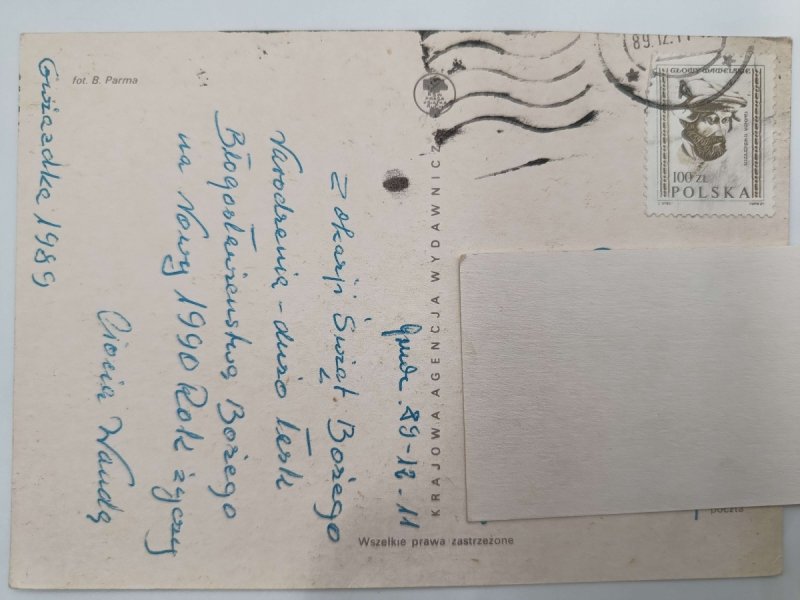 fot. B. Parma
89-12-11
Z okazji Świąt Bożego
Narodzenia - dużo łask
Błogosławieństwa Bożego
na Nowy 1990 Rok życzy
Ciocia Wanda
Gwiazdka 1989
KRAJOWA AGENCJA WYDAWNICZ
Wszelkie prawa zastrzeżone
89.12.11
GŁOWY WAWELSKIE
100 ZŁ
POLSKA
poczta